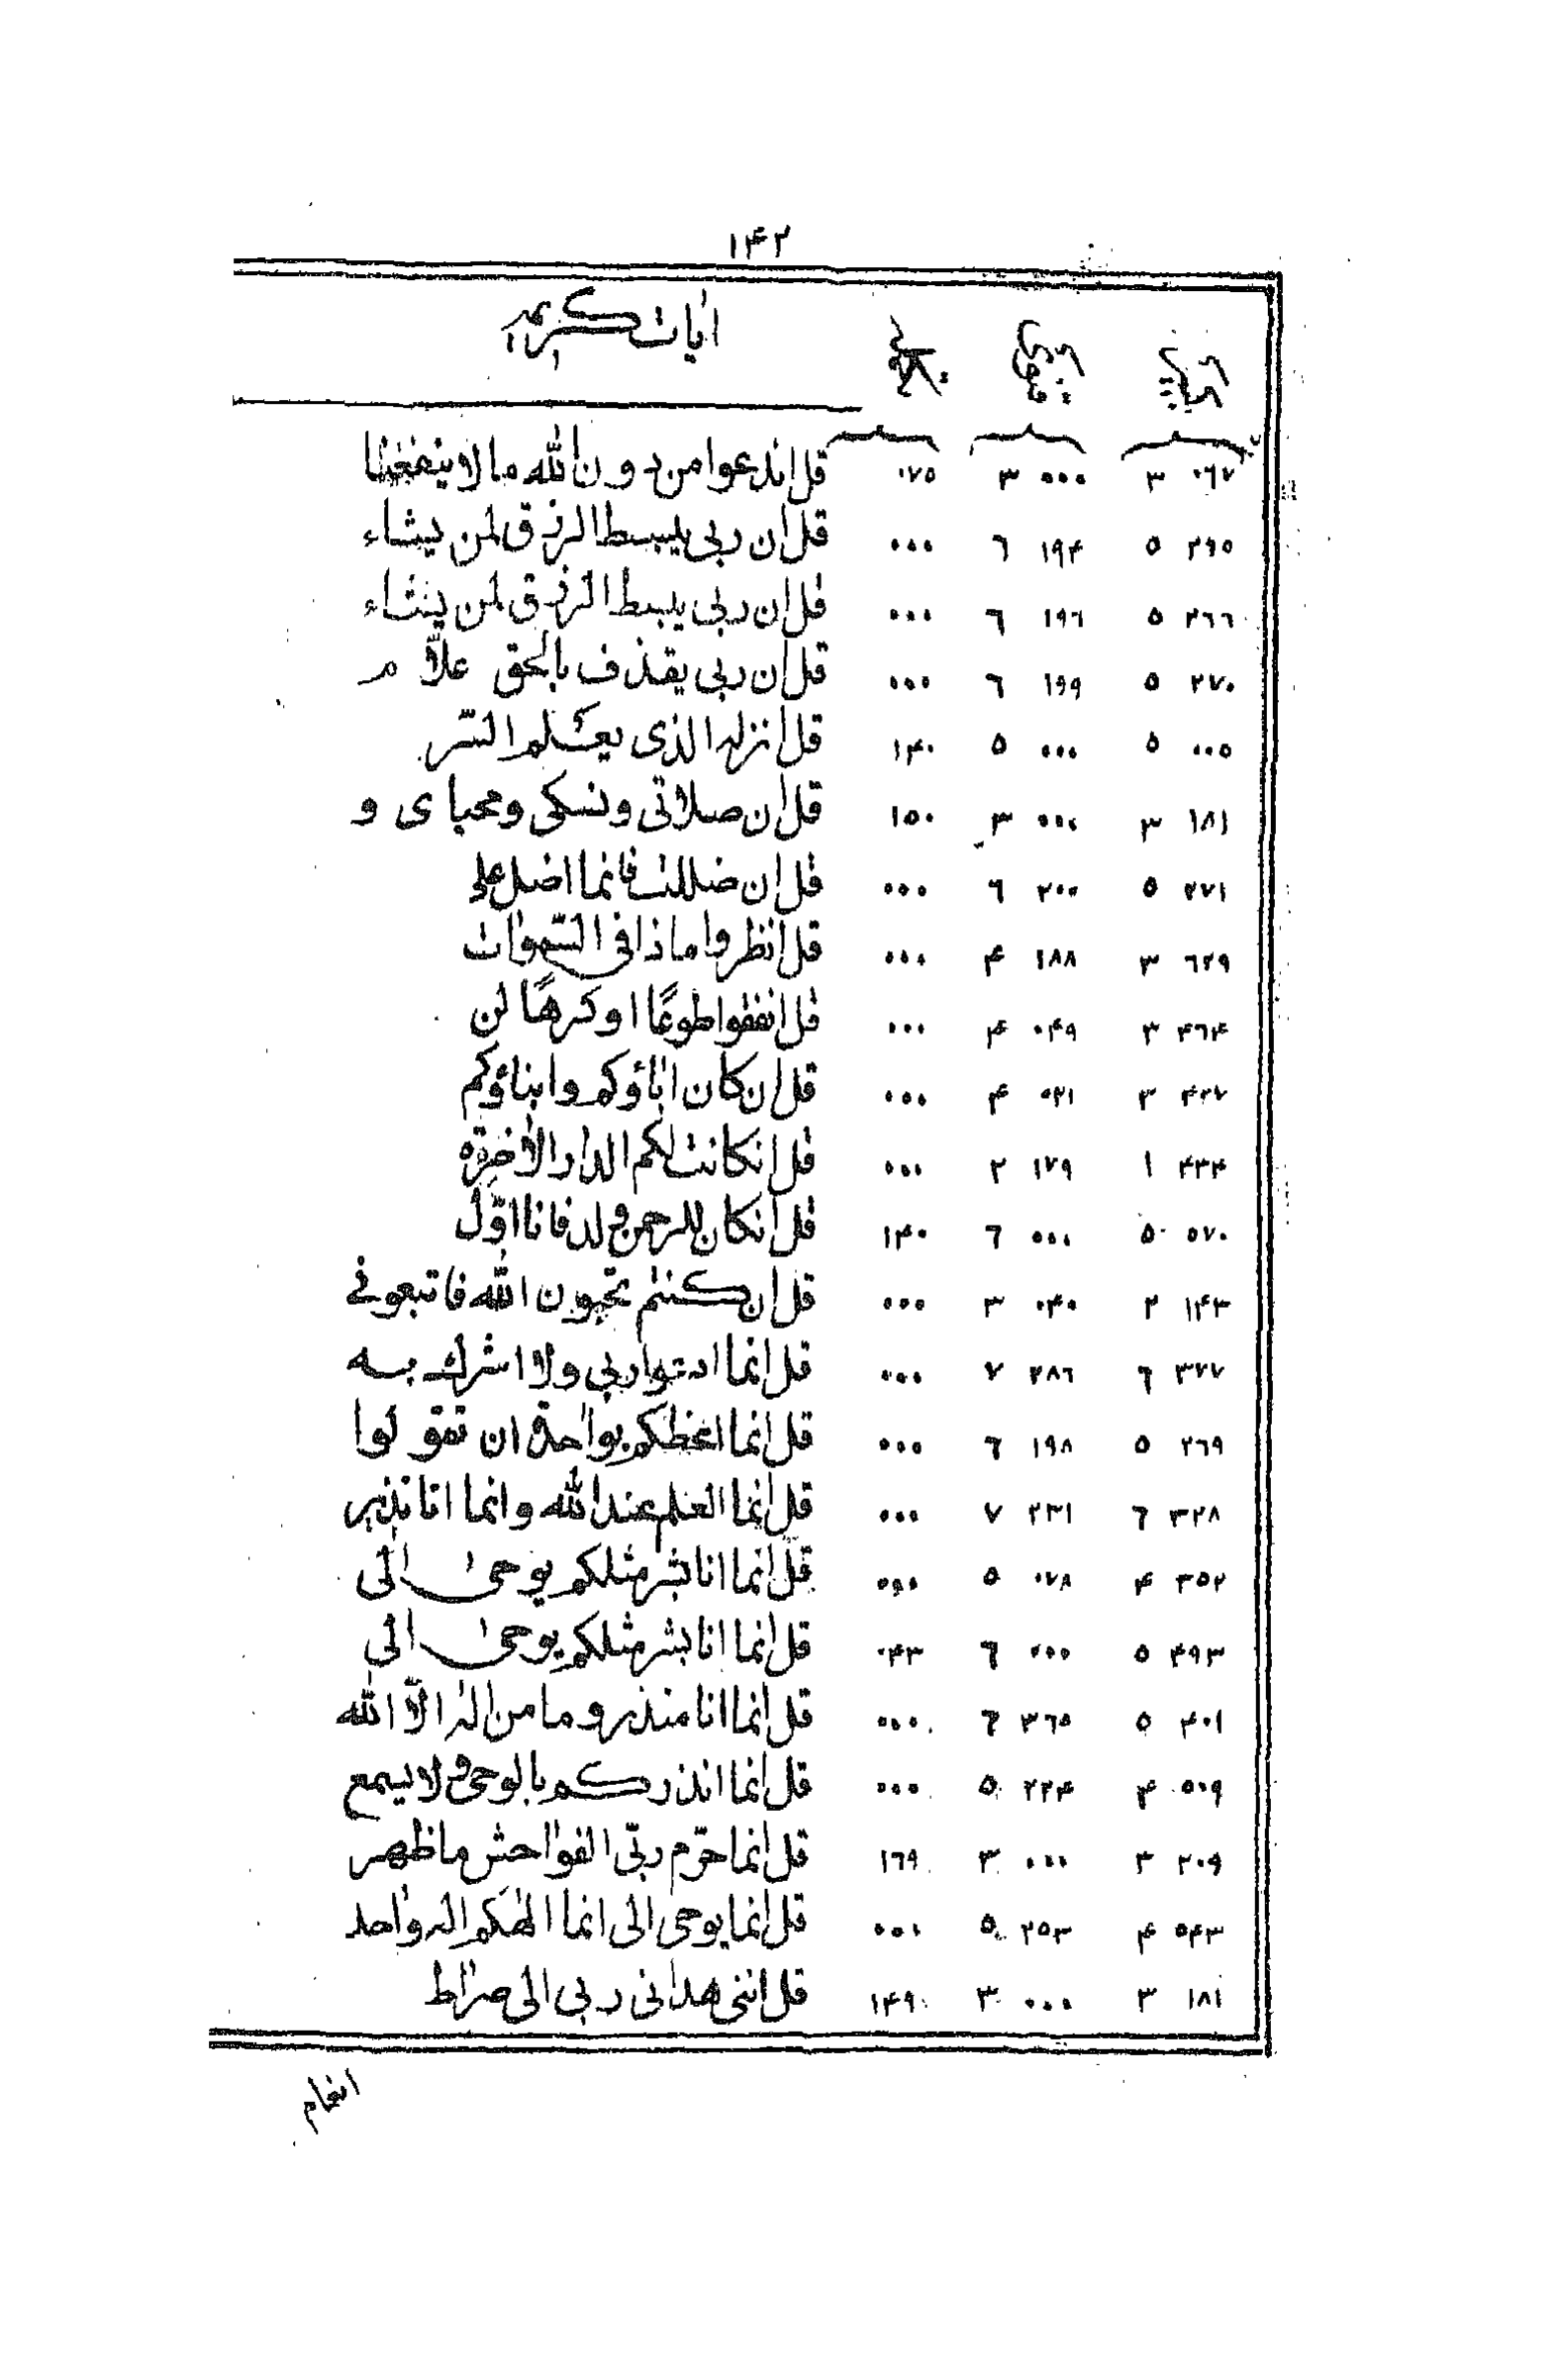 ۱۴۲
اٰیات کریمہ
۰٦۷ ۳ ۰۰۰ ۳ ۰۷۵ قل اندعوا من دون الله ما لا ینفعنا
۲۹۵ ۵ ۱۹۴ ٦ ۰۰۰ قل ان ربی یبسط الرزق لمن یشاء
۲٦٦ ۵ ۱۹٦ ٦ ۰۰۰ قل ان ربی یبسط الرزق لمن یشاء
۲۷۰ ۵ ۱۹۹ ٦ ۰۰۰ قل ان ربی یقذف بالحق علاّم
۰۰۵ ۵ ۰۰۰ ۵ ۱۴۰ قل انزله الذی یعلم السّر
۱۸۱ ۳ ۰۰۰ ۳ ۱۵۰ قل ان صلاتی ونسکی ومحیای و
۲۷۱ ۵ ۲۰۰ ٦ ۰۰۰ قل ان ضللت فانما اضل علی
٦۲۹ ۳ ۱۸۸ ۴ ۰۰۰ قل انظروا ماذا فی السّمٰوات
۴٦۴ ۳ ۰۴۹ ۴ ۰۰۰ قل انفقوا طوعًا او کرهًا لن
۴۲۷ ۳ ۰۲۱ ۴ ۰۰۰ قل ان کان اٰباؤکم وابناؤکم
۴۳۴ ۱ ۱۷۹ ۲ ۰۰۰ قل انکانت لکم الدار الاٰخرة
۵۷۰ ۵ ۰۰۰ ٦ ۱۴۰ قل انکان للرحمن ولد فانا اوّل
۱۴۳ ۲ ۰۴۰ ۳ ۰۰۰ قل ان کنتم تحبون الله فاتبعونی
۳۷۷ ٦ ۲۸٦ ۷ ۰۰۰ قل انما ادعوا ربی ولا اشرك به
۲٦۹ ۵ ۱۹۸ ٦ ۰۰۰ قل انما اعظکم بواحدة ان تقولوا
۳۲۸ ٦ ۲۳۱ ۷ ۰۰۰ قل انما العلم عند الله وانما انا نذیر
۳۵۲ ۴ ۰۷۸ ۵ ۰۰۰ قل انما انا بشر مثلکم یوحیٰ الی
۴۹۳ ۵ ۰۰۰ ٦ ۰۴۳ قل انما انا بشر مثلکم یوحیٰ الی
۴۰۱ ۵ ۳٦۵ ٦ ۰۰۰ قل انما انا منذر وما من اله الاّ الله
۵۰۹ ۴ ۲۲۴ ۵ ۰۰۰ قل انما انذرکم بالوحی ولا یسمع
۲۰۹ ۳ ۰۰۰ ۳ ۱٦۹ قل انما حرّم ربّی الفواحش ما ظهر
۵۴۳ ۴ ۲۵۳ ۵ ۰۰۰ قل انما یوحی الی انما الٰهکم اله واحد
۱۸۱ ۳ ۰۰۰ ۳ ۱۴۹ قل اننی هدانی ربی الی صراط